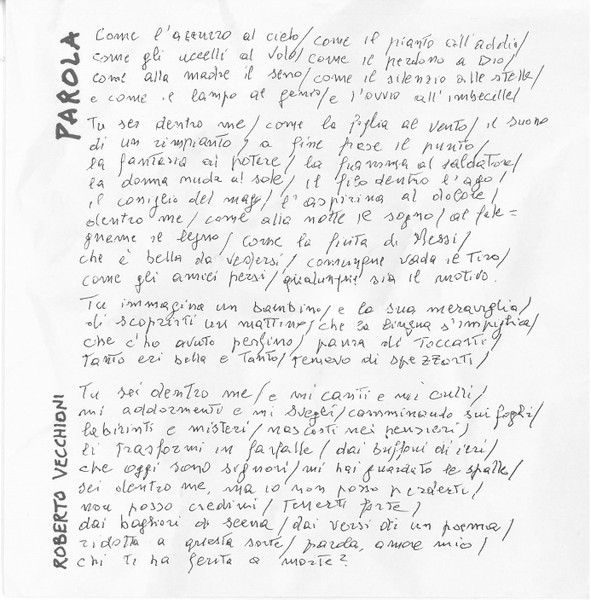 PAROLA
Come l'azzurro al cielo/come il pianto all'addio/
come gli uccelli al volo/come il perdono a Dio/
come alla madre il seno/come il silenzio alle stelle/
e come il lampo al genio/e l'ovvio all'imbecille/
Tu sei dentro me/come la foglia al vento/il suono
di un rimpianto/a fine frase il punto/
la fantasia al potere/la fiamma al saldatore/
la donna nuda al sole/il filo dentro l'ago/
il coniglio del mago/l'aspirina al dolore/
dentro me/come alla notte il sogno/al fale=
gname il legno/come la finta di Messi/
che è bella da vedersi/comunque vada il tiro/
come gli amici persi/qualunque sia il motivo.
Tu immagina un bambino/e la sua meraviglia/
di scoprirti un mattino/che la lingua s'impiglia/
che c'ho avuto perfino/paura di toccarti/
tanto eri bella e tanto/temevo di spezzarti/
ROBERTO VECCHIONI
Tu sei dentro me/e mi canti e mi culli/
mi addormento e mi svegli/camminando sui fogli/
labirinti e misteri/nascosti nei pensieri/
li trasformi in farfalle/dai buffoni di ieri/
che oggi sono signori/mi hai guardato le spalle/
sei dentro me, ma io non posso perderti/
non posso crederci/tenerti forte/
dai bagliori di scena/dai versi di un poema/
ridotta a questa sorte/parola, amore mio/
chi ti ha ferita a morte?